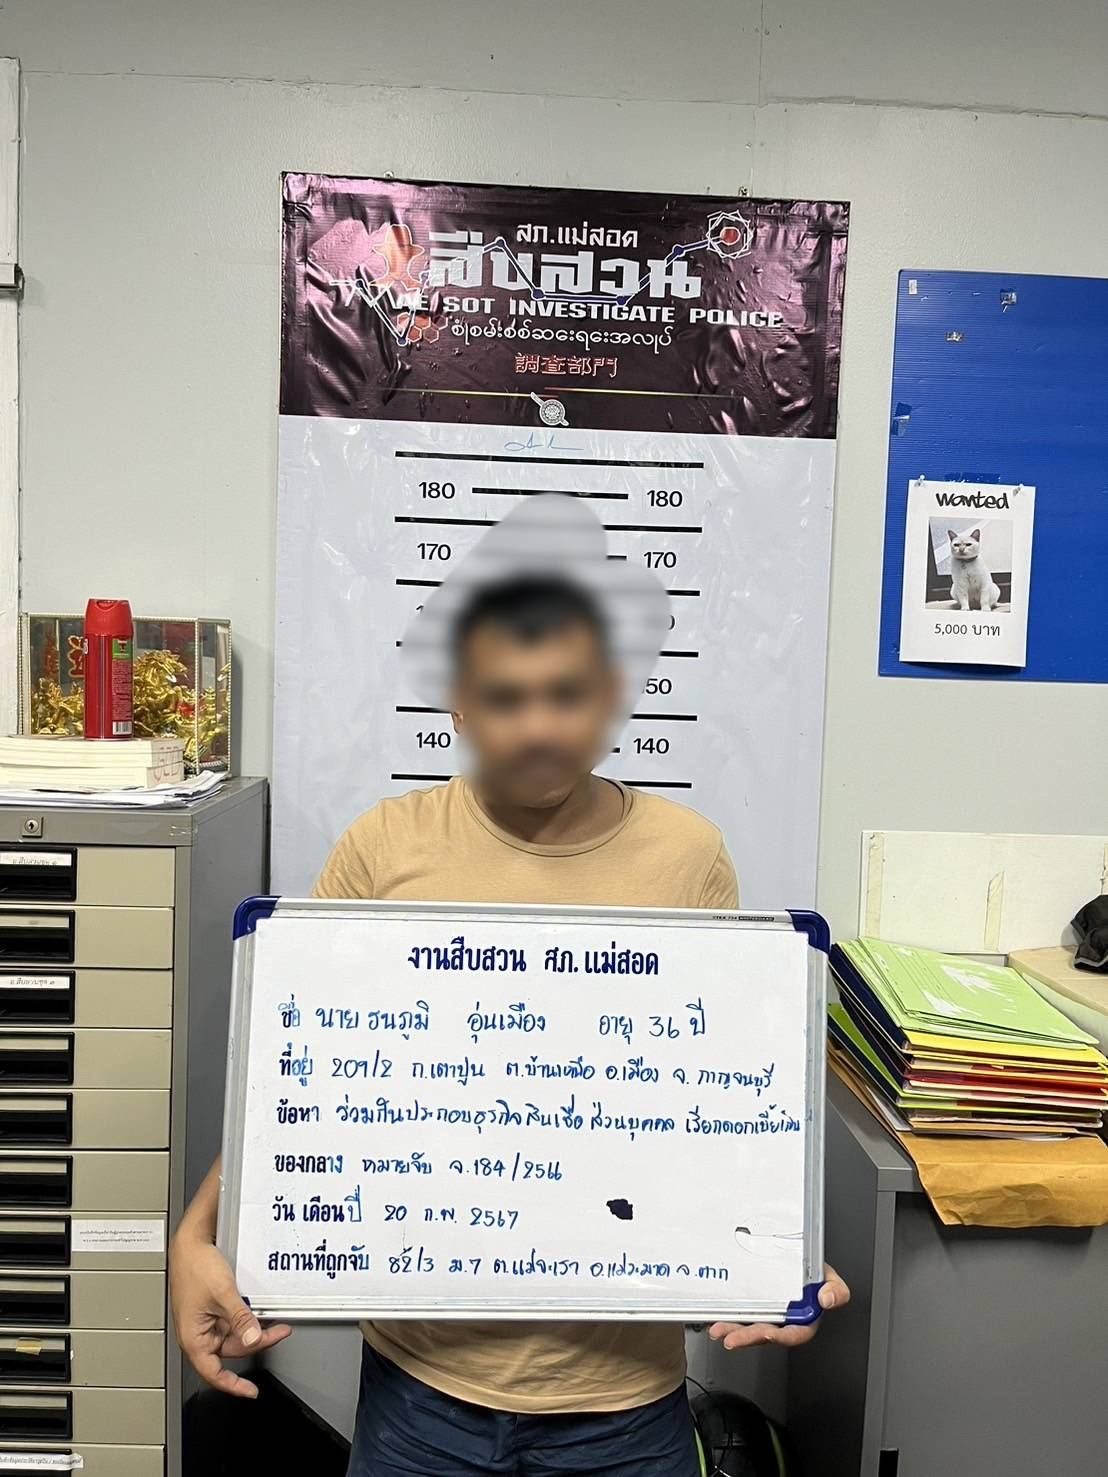 สภ.แม่สอด
สืบสวน
MAE SOT INVESTIGATE POLICE
စုံစမ်းစစ်ဆေးရေးအလုပ်
調查部門
180 180
170 170
140 140
wanted
5,000 บาท
งานสืบสวน สภ.แม่สอด
ชื่อ นาย ธนภูมิ อุ่นเมือง อายุ 36 ปี
ที่อยู่ 209/2 ถ.เตาปูน ต.บ้านเหนือ อ.เมือง จ.กาญจนบุรี
ข้อหา ร่วมกันประกอบธุรกิจสินเชื่อ ส่วนบุคคล เรียกดอกเบี้ยเกิน
ของกลาง หมายจับ จ.184/2566
วัน เดือน ปี 20 ก.พ. 2567
สถานที่ถูกจับ 82/3 ม.7 ต.แม่จะเรา อ.แม่ระมาด จ.ตาก